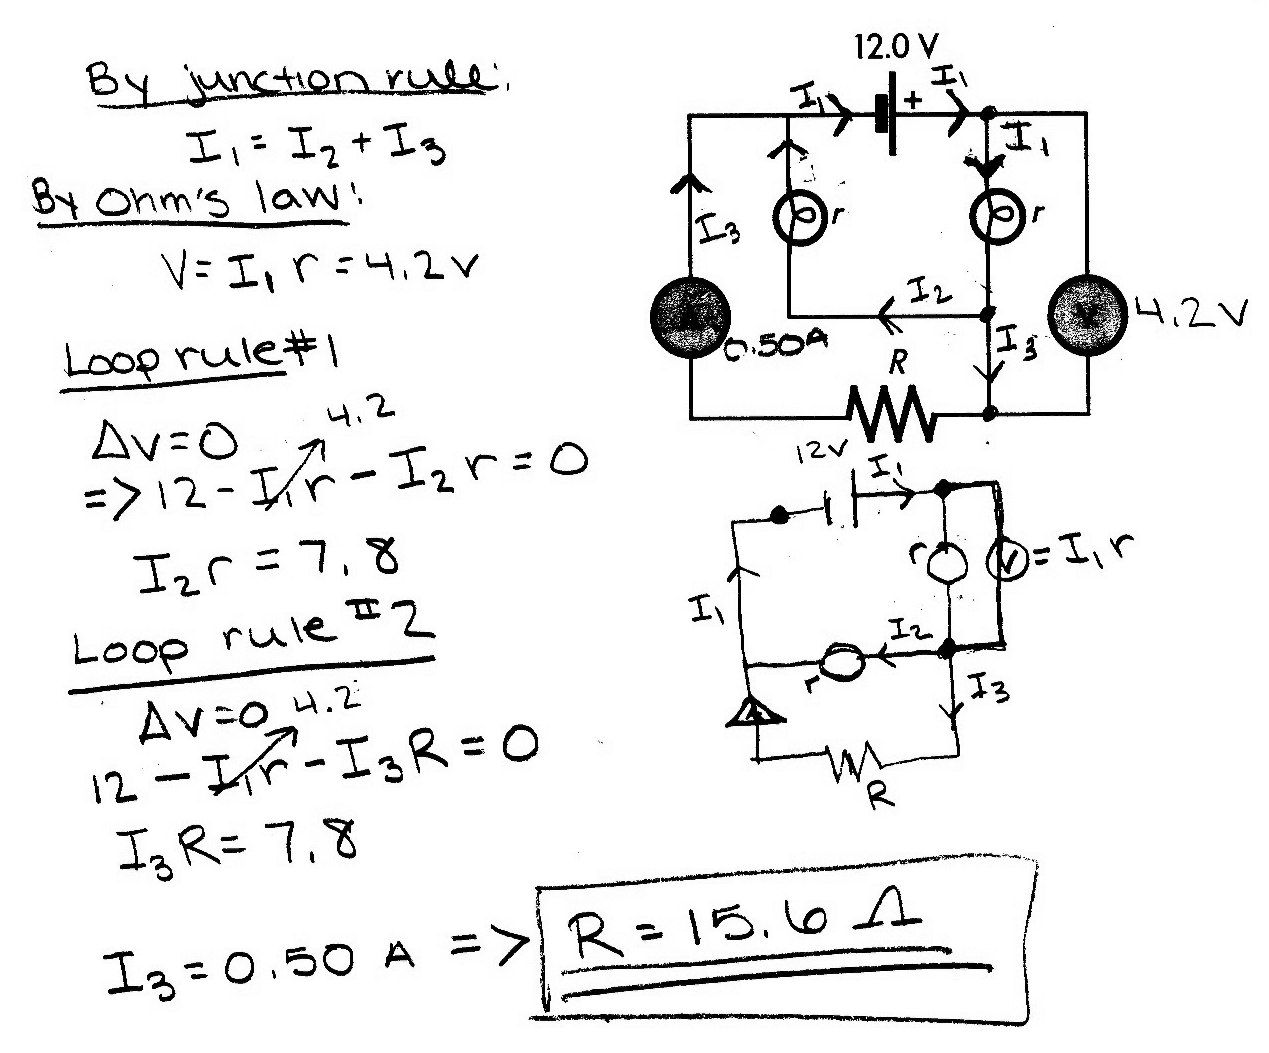 By junction rule:
I₁ = I₂ + I₃
By Ohm's law:
V = I₁ r = 4.2 V
Loop rule #1
ΔV = 0
4.2
=> 12 - I₁r - I₂r = 0
I₂r = 7.8
Loop rule #2
ΔV = 0
4.2
12 - I₁r - I₃R = 0
I₃R = 7.8
I₃ = 0.50 A => R = 15.6 Ω
12.0 V
I₁
+
I₁
I₁
r
r
I₃
I₂
A
0.50A
V
4.2 V
I₃
R
12V
I₁
r
V = I₁ r
I₁
I₂
r
I₃
A
R